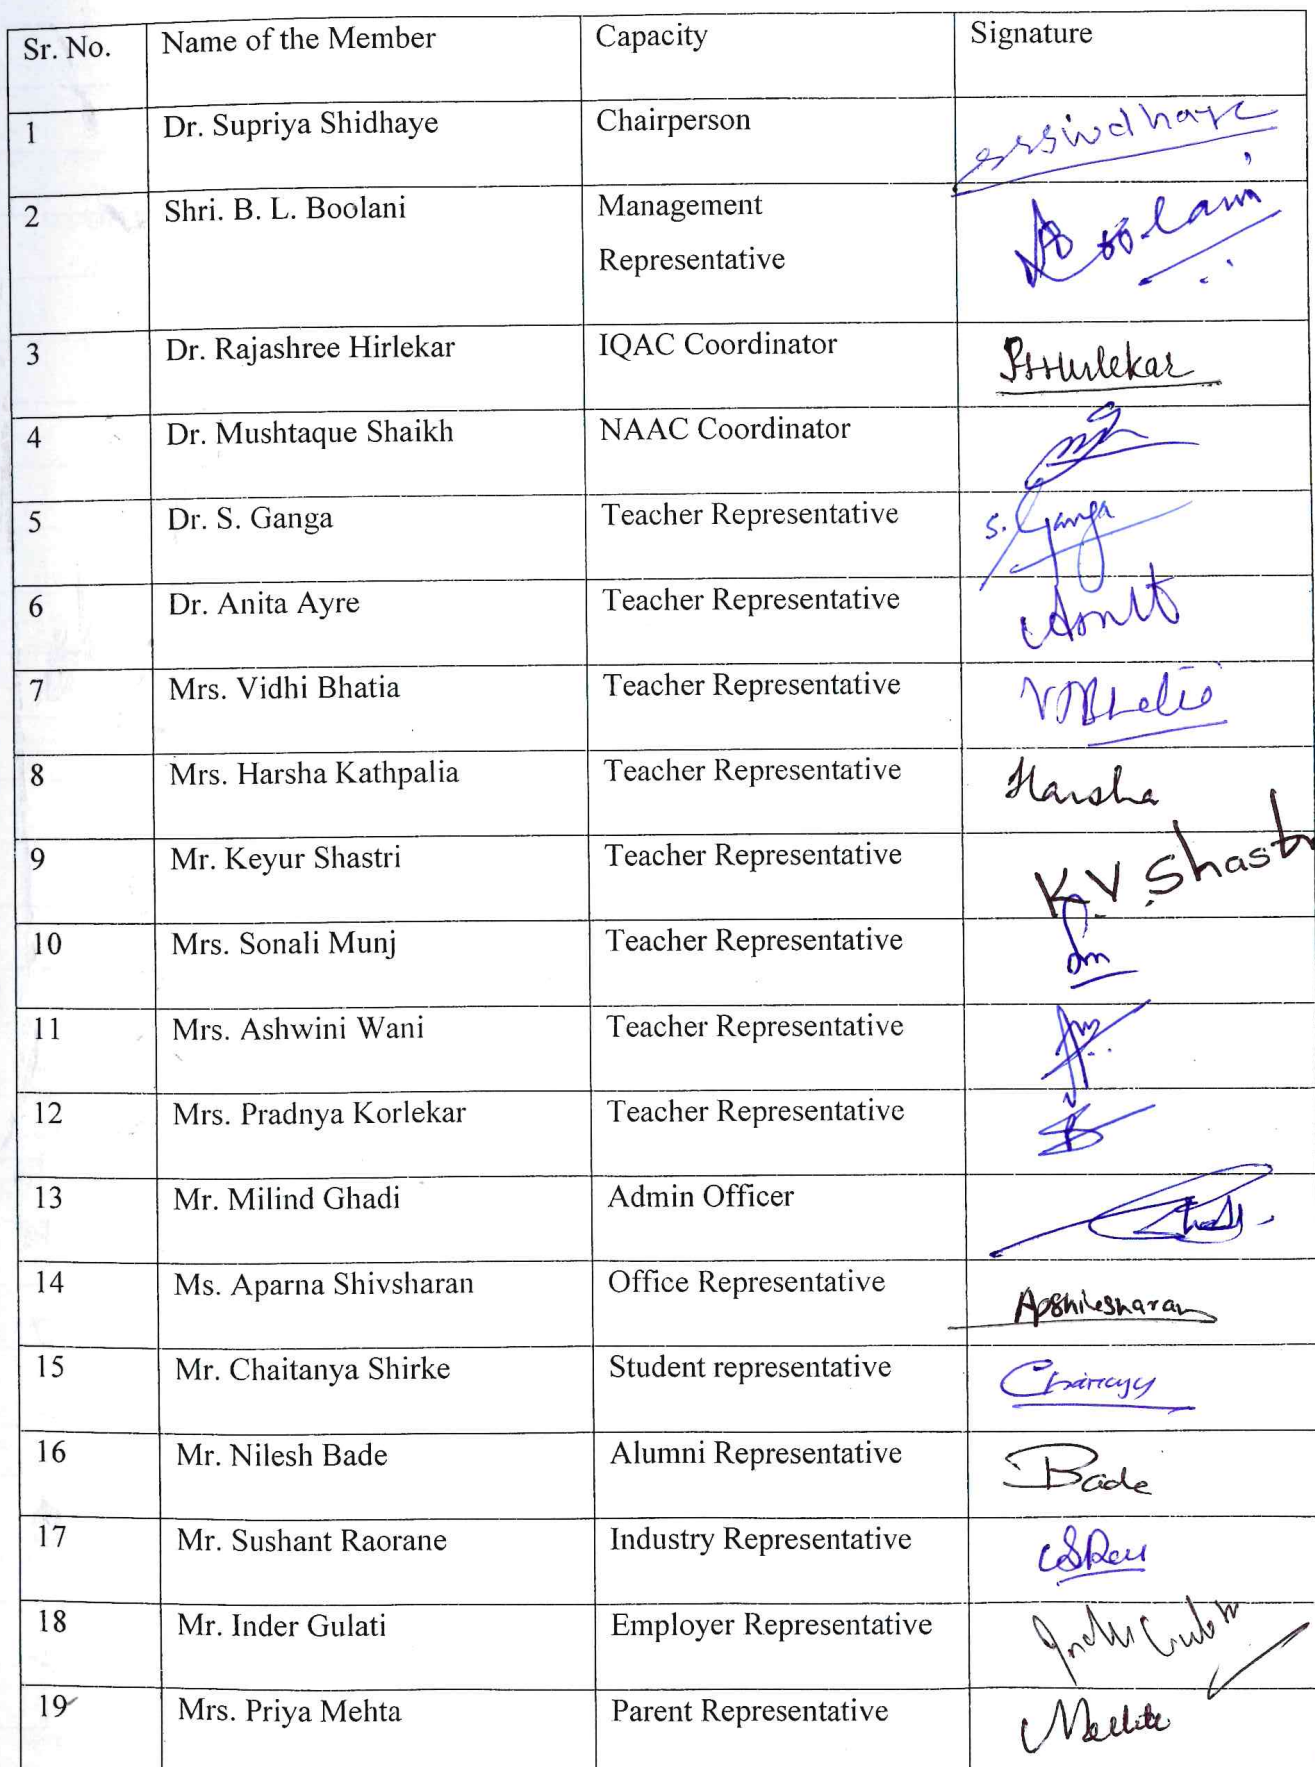 Sr. No. Name of the Member Capacity Signature
1 Dr. Supriya Shidhaye Chairperson
2 Shri. B. L. Boolani Management
Representative
Boolani
3 Dr. Rajashree Hirlekar IQAC Coordinator
4 Dr. Mushtaque Shaikh NAAC Coordinator
5 Dr. S. Ganga Teacher Representative S. Ganga
6 Dr. Anita Ayre Teacher Representative
7 Mrs. Vidhi Bhatia Teacher Representative
8 Mrs. Harsha Kathpalia Teacher Representative Harsha
9 Mr. Keyur Shastri Teacher Representative K.V Shastri
10 Mrs. Sonali Munj Teacher Representative
11 Mrs. Ashwini Wani Teacher Representative
12 Mrs. Pradnya Korlekar Teacher Representative
13 Mr. Milind Ghadi Admin Officer
14 Ms. Aparna Shivsharan Office Representative
15 Mr. Chaitanya Shirke Student representative
16 Mr. Nilesh Bade Alumni Representative Bade
17 Mr. Sushant Raorane Industry Representative
18 Mr. Inder Gulati Employer Representative
19 Mrs. Priya Mehta Parent Representative